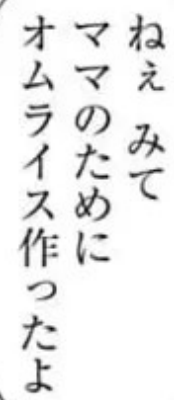 ねぇ みて
ママのために
オムライス作ったよ